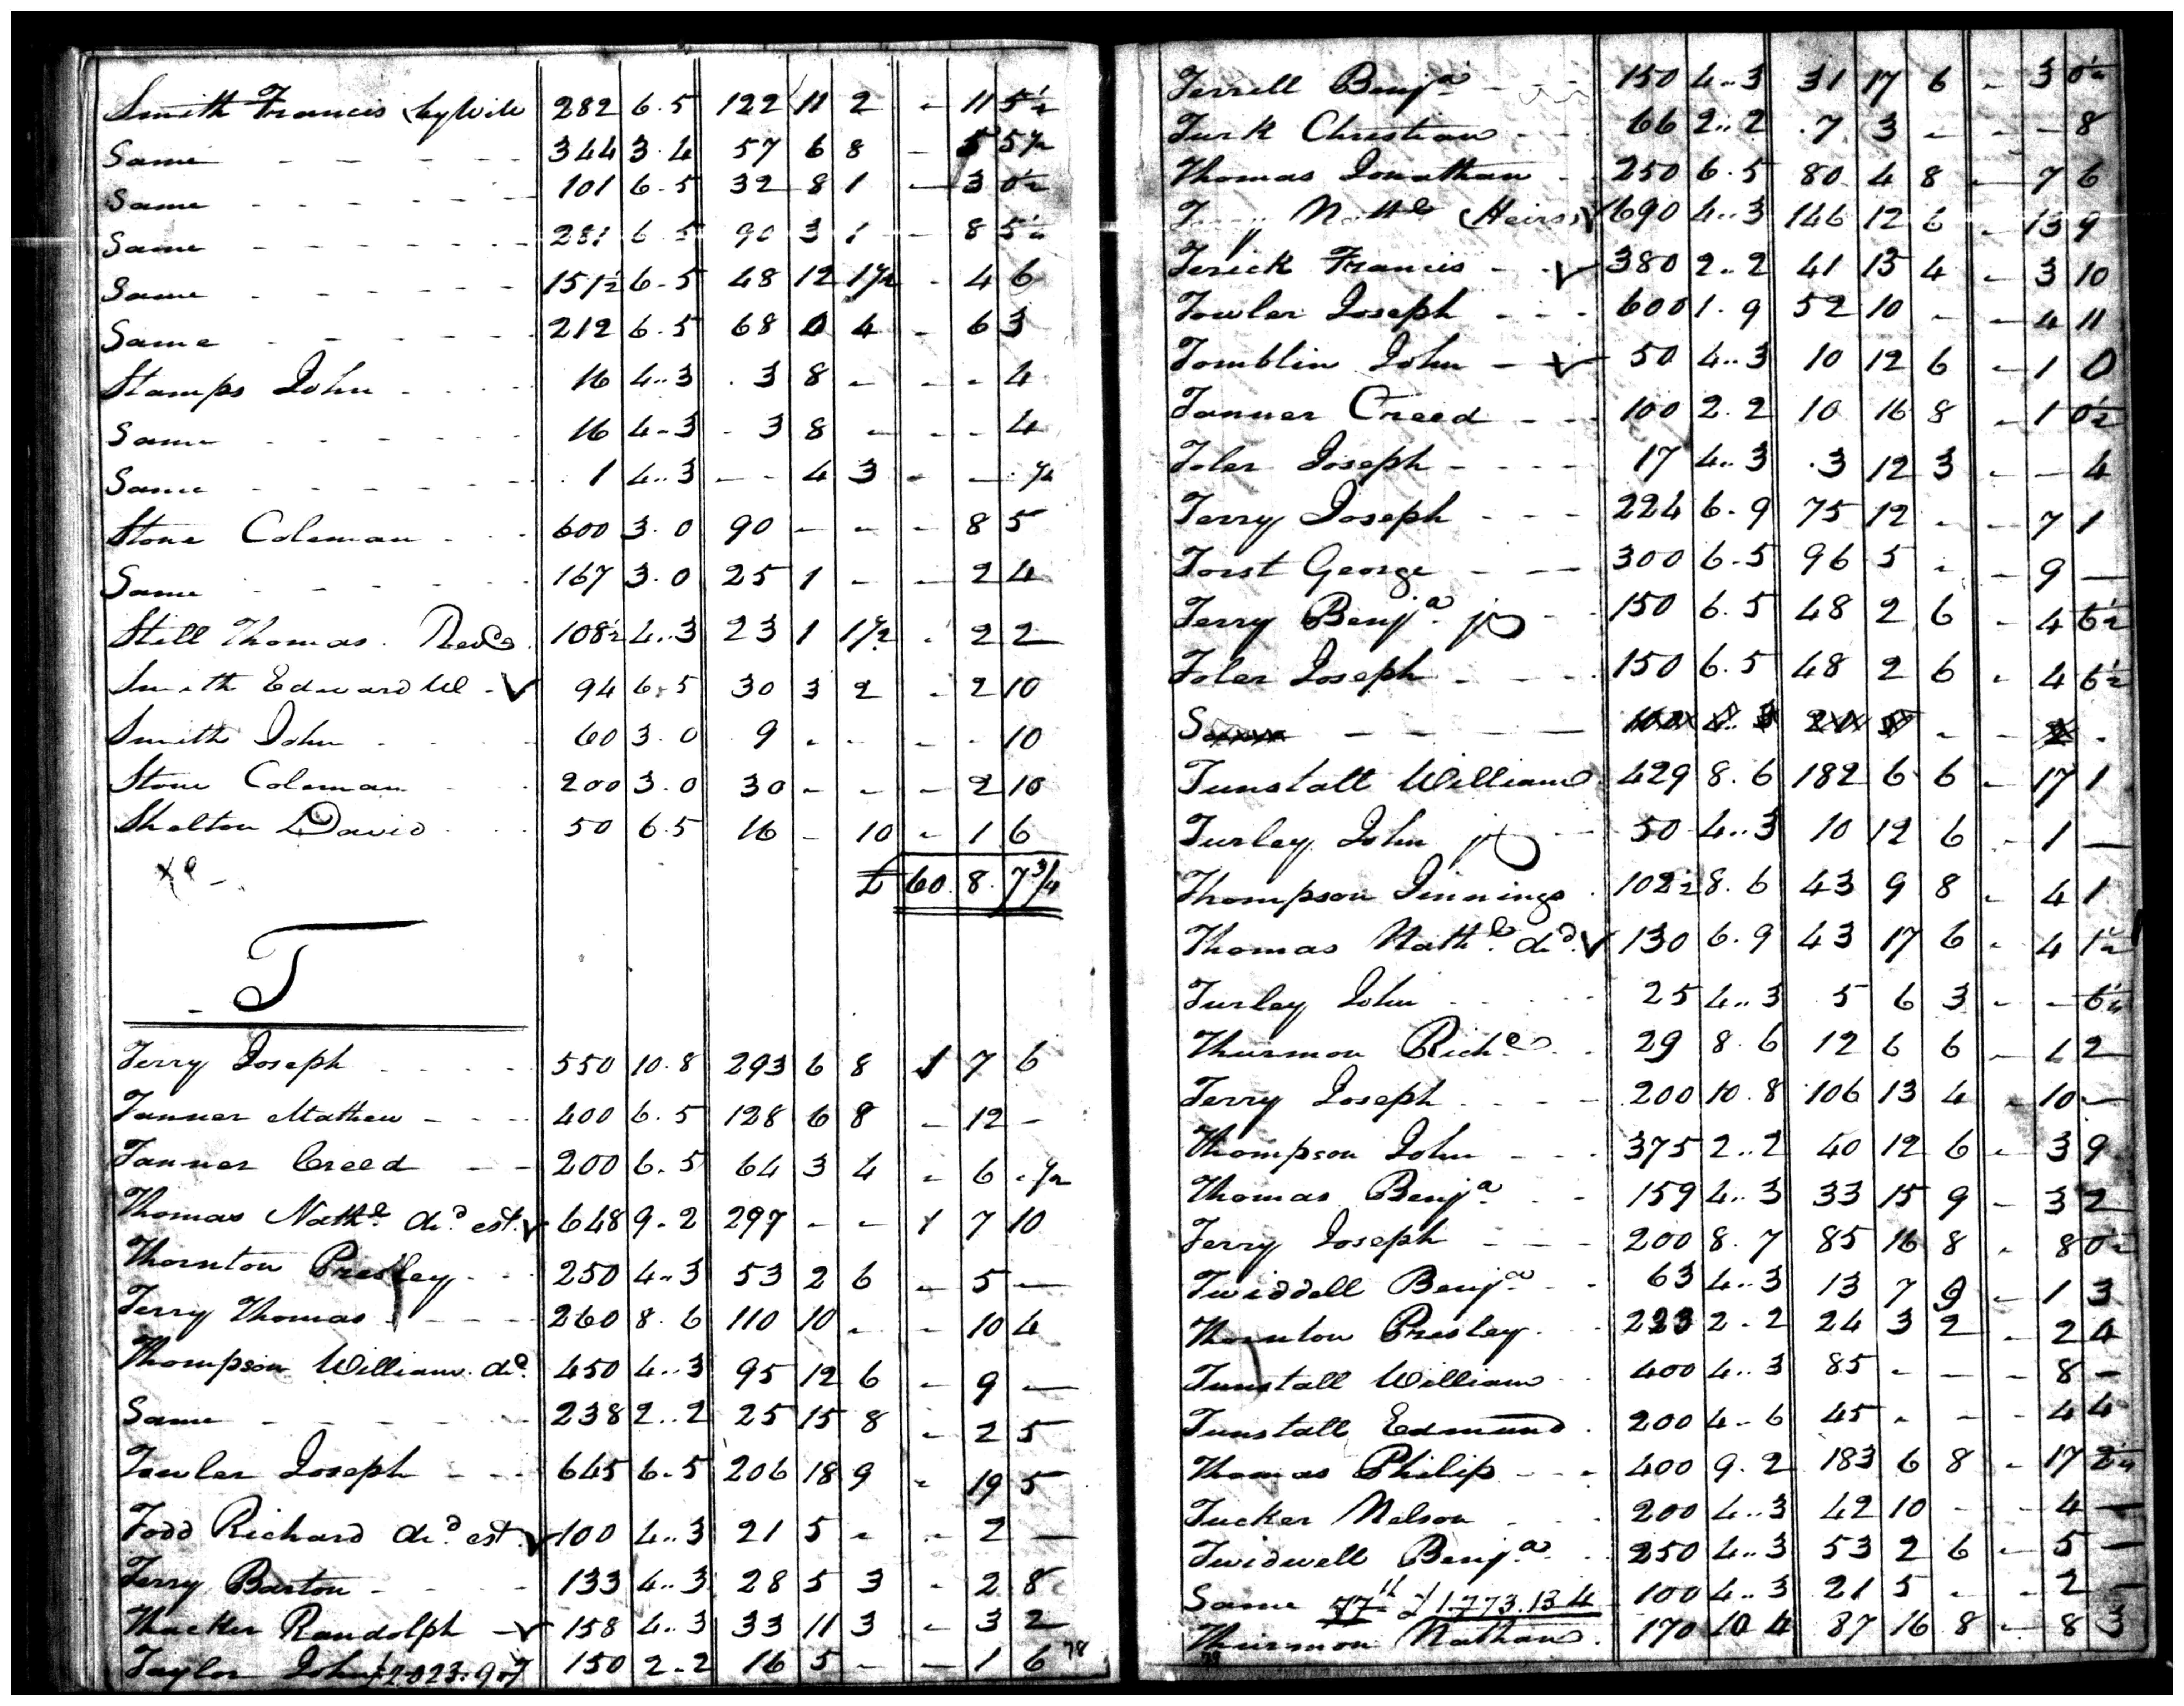 Smith Francis by Wife 282 6.5 122 11 2 - 11 5½
Same - - - - - 344 3.4 57 6 8 - 5 5½
Same - - - - - 101 6.5 32 8 1 - 3 0½
Same - - - - - - 281 6.5 90 3 1 - 8 5½
Same - - - - - - 151½ 6.5 48 12 1½ - 4 6
Same - - - - - 212 6.5 68 0 4 - 6 3
Stamps John - - - 16 4..3 3 8 - - - 4
Same - - - - - 16 4..3 - 3 8 - - - 4
Same - - - - - - 1 4..3 - - 4 3 - - ½
Stone Coleman - - 600 3.0 90 - - - 8 5
Same - - - - - 167 3.0 25 1 - - 2 4
Still Thomas 108½ 4..3 23 1 1½ - 2 2
Smith Edward W - ✓ 94 6.5 30 3 2 - 2 10
Smith John - - - 60 3.0 9 - - - - 10
Stone Coleman - - 200 3.0 30 - - - 2 10
Shelton David - - 50 6.5 16 - 10 - 1 6
£ 60. 8. 7¾
T
Terry Joseph - - - - 550 10.8 293 6 8 1 7 6
Tanner Mathew - - - 400 6.5 128 6 8 - 12 -
Tanner Creed - - 200 6.5 64 3 4 - 6 - ½
Thomas Nathl decd est. ✓ 648 9.2 297 - - 1 7 10
Thornton Presley - - 250 4..3 53 2 6 - 5 -
Terry Thomas - - - 260 8.6 110 10 - - 10 4
Thompson William decd 450 4..3 95 12 6 - 9 -
Same - - - - - 238 2..2 25 15 8 - 2 5
Towler Joseph - - - 645 6.5 206 18 9 - 19 5
Todd Richard decd est ✓ 100 4..3 21 5 - - 2 -
Terry Barton - - - 133 4..3 28 5 3 - 2 8
Thacker Randolph - ✓ 158 4..3 33 11 3 - 3 2
Taylor John £2023.9.7 150 2..2 16 5 - - 1 6
78
Terrell Benja - - - 150 4..3 31 17 6 - 3 0¼
Turk Christian - - - 66 2..2 7 3 - - - 8
Thomas Jonathan - 250 6.5 80 4 8 - 7 6
Nathl (Heirs) ✓ 690 4..3 146 12 6 - 13 9
Terick Francis - ✓ 380 2..2 41 13 4 - 3 10
Towler Joseph - - - 600 1.9 52 10 - - 4 11
Tomblin John - ✓ 50 4..3 10 12 6 - 1 0
Tanner Creed - - - 100 2.2 10 16 8 - 1 0½
Toler Joseph - - - - 17 4..3 3 12 3 - - 4
Terry Joseph - - - 224 6.9 75 12 - - 7 1
Torst George - - - 300 6.5 96 5 - - 9 -
Terry Benja jr - - 150 6.5 48 2 6 - 4 6½
Toler Joseph - - - 150 6.5 48 2 6 - 4 6½
Tunstall William 429 8.6 182 6 6 - 17 1
Turley John jr - - 50 4..3 10 12 6 - 1 -
Thompson Jennings 102½ 8.6 43 9 8 - 4 1
Thomas Nathl decd ✓ 130 6.9 43 17 6 - 4 1½
Turley John - - - 25 4..3 5 6 3 - - 6¼
Thurmon Richd - - 29 8.6 12 6 6 - 1 2
Terry Joseph - - - 200 10.8 106 13 4 - 10 -
Thompson John - - - 375 2..2 40 12 6 - 3 9
Thomas Benja - - 159 4..3 33 15 9 - 3 2
Terry Joseph - - - 200 8.7 85 16 8 - 8 0½
Twiddell Benja - - 63 4..3 13 7 9 - 1 3
Thornton Presley - - 223 2.2 24 3 2 - 2 4
Tunstall William - - 400 4..3 85 - - - 8 -
Tunstall Edmund - 200 4.6 45 - - - 4 4
Thomas Philip - - - 400 9.2 183 6 8 - 17 2¼
Tucker Nelson - - - 200 4..3 42 10 - - 4 -
Twidwell Benja - - 250 4..3 53 2 6 - 5 -
Same £1.773.13.4 100 4..3 21 5 - - 2 -
Thurmon Nathan - 170 10 4 87 16 8 - 8 3